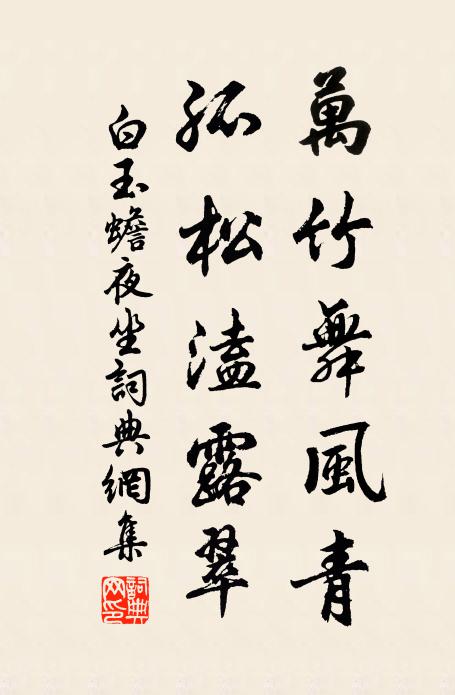 萬竹舞風青
孤松溘露翠
白玉蟾夜坐詞典網集
詞典網印